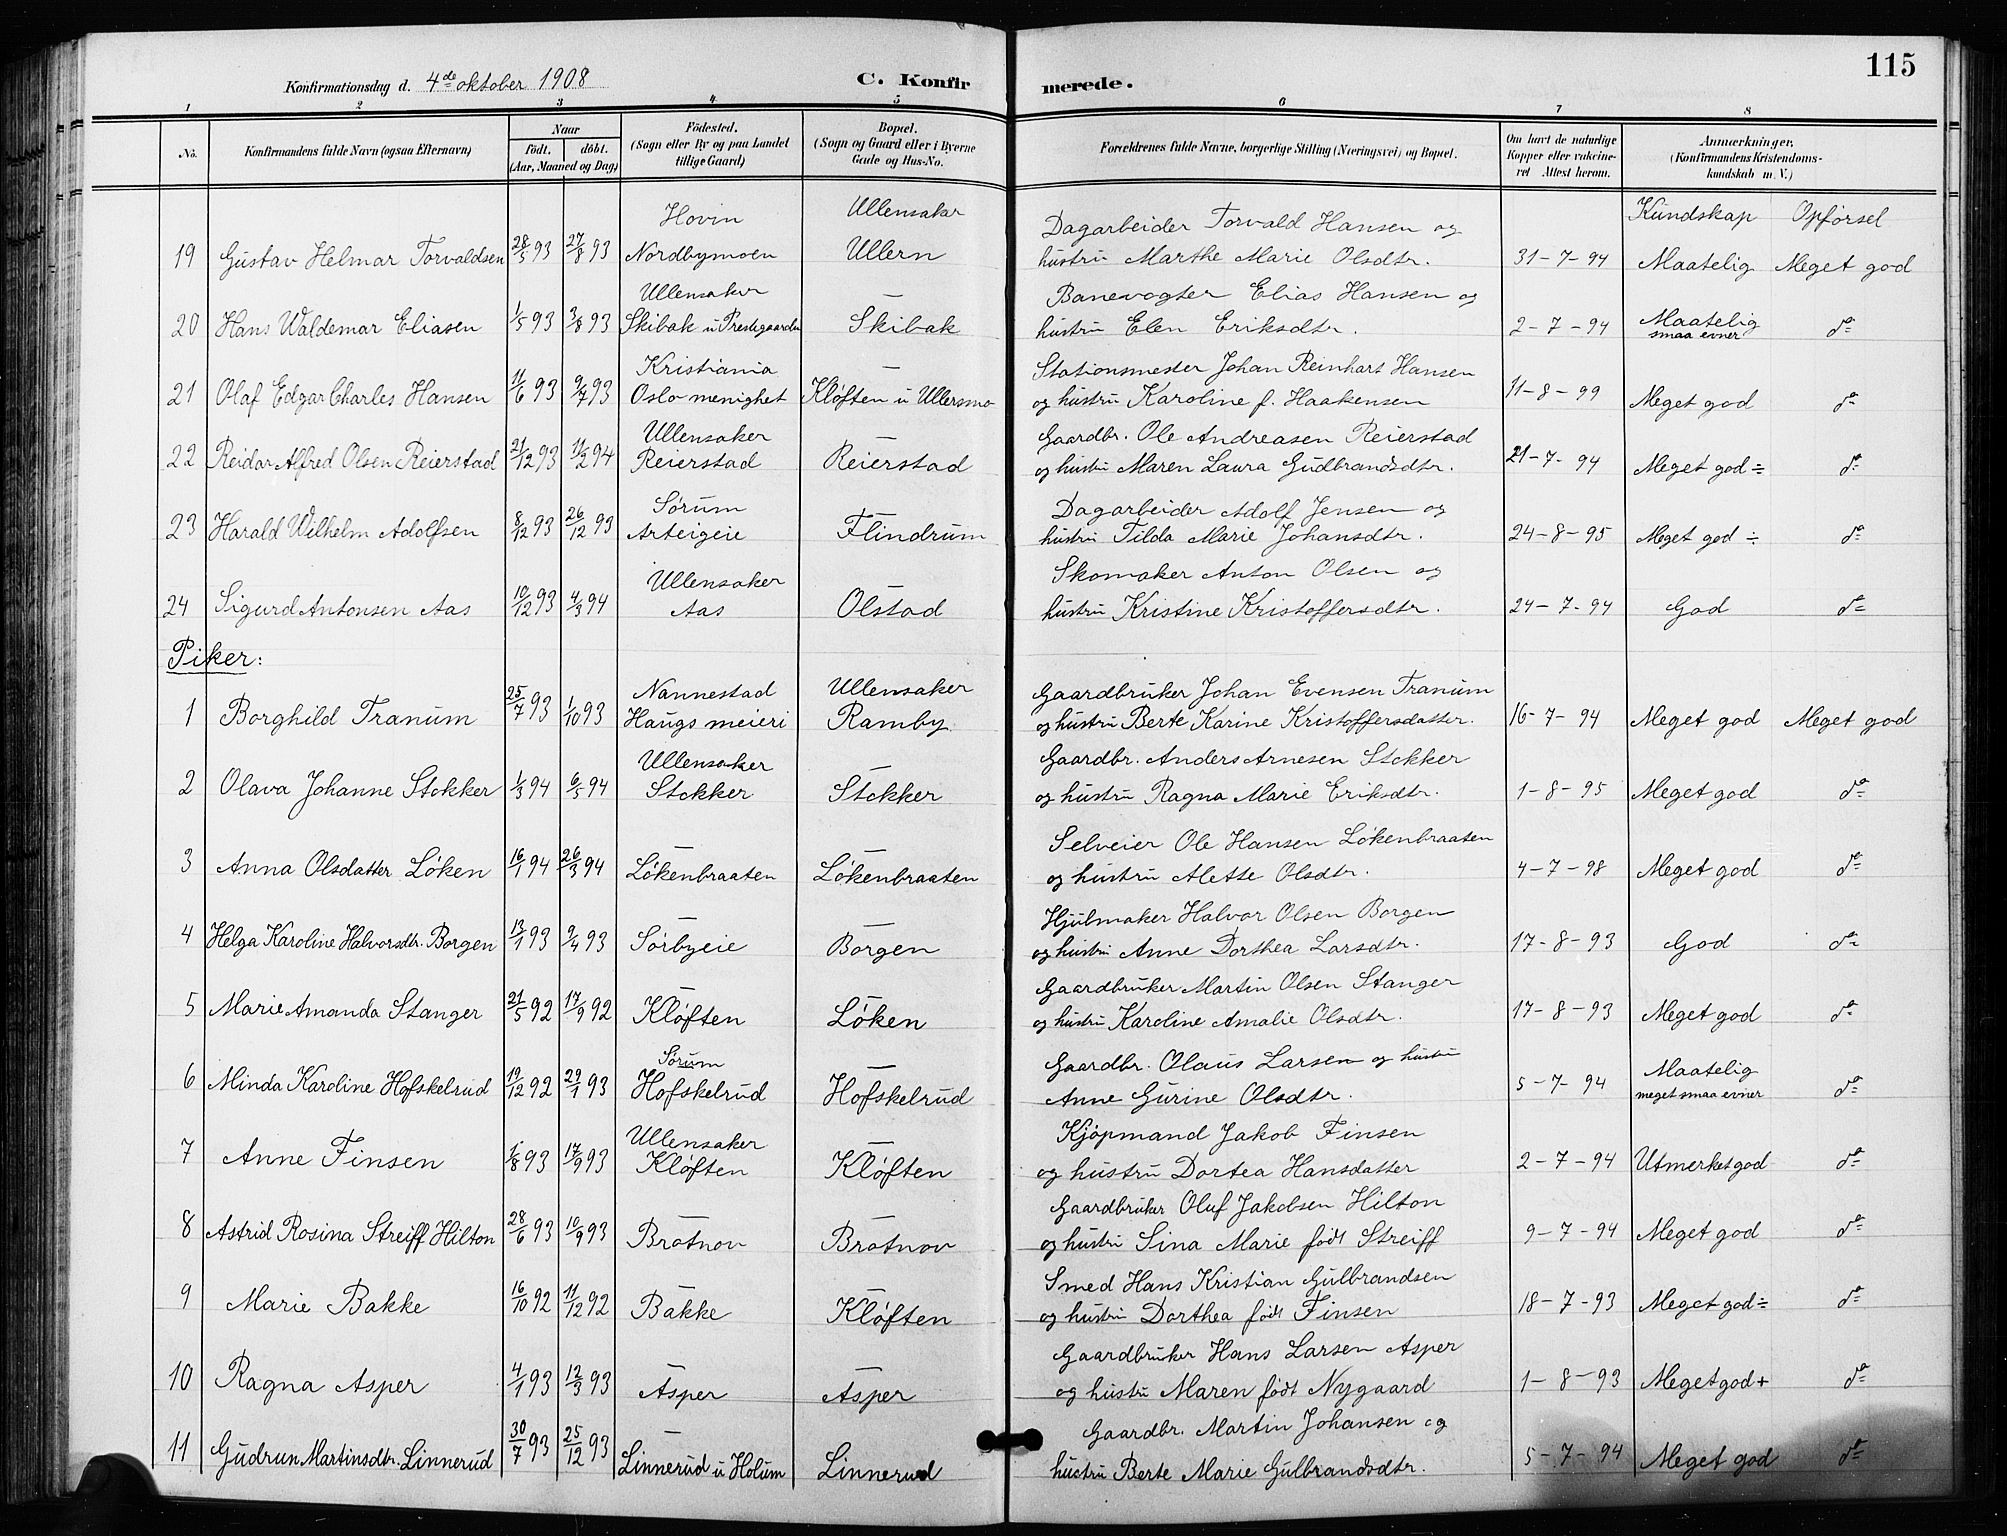 115
Konfirmationsdag d. 4de oktober 1908 C. Konfirmerede.
1 2 3 4 5 6 7 8
No. Konfirmandens fulde Navn (ogsaa Efternavn) Naar Födt. döbt. (Aar, Maaned og Dag) Födested. (Sogn eller By og paa Landet tillige Gaard) Bopæl. (Sogn og Gaard eller i Byerne Gade og Hus-No. Forældrenes fulde Navne, borgerlige Stilling (Næringsvei) og Bopæl. Om havt de naturlige Kopper eller vakcineret Attest herom. Anmærkninger. (Konfirmandens Kristendomskundskab m. V.)
Hovin Ullensaker Dagarbeider Torvald Hansen og Kundskap Opførsel
19 Gustav Helmar Torvaldsen 28/5 93 27/8 93 Nordbymoen Ullern hustru Marthe Marie Olsdtr. 31-7-94 Maatelig Meget god
Ullensaker — Banevogter Elias Hansen og Maatelig
20 Hans Waldemar Eliasen 1/5 93 3/8 93 Skibak u Prestegaarden Skibak hustru Elen Eriksdtr. 2-7-94 smaa evner do
Kristiania — Stationsmester Johan Reinhart Hansen
21 Olaf Edgar Charles Hansen 11/6 93 9/7 93 Oslo menighet Kløften u Ullersmo og hustru Karoline f. Haakensen 11-8-99 Meget god do
Ullensaker — Gaardbr. Ole Andreasen Reierstad
22 Reidar Alfred Olsen Reierstad 21/12 93 11/2 94 Reierstad Reierstad og hustru Maren Laura Gudbrandsdtr. 21-7-94 Meget god ÷ do
Sørum — Dagarbeider Adolf Jensen og
23 Harald Wilhelm Adolfsen 8/12 93 26/12 93 Arteigeie Flindrum hustru Tilda Marie Johansdtr. 24-8-95 Meget god ÷ do
Ullensaker — Skomaker Anton Olsen og
24 Sigurd Antonsen Aas 10/12 93 4/3 94 Aas Olstad hustru Kristine Kristoffersdtr. 24-7-94 God do
Piker:
Nannestad Ullensaker Gaardbruker Johan Evensen Tranum
1 Borghild Tranum 25/7 93 1/10 93 Haugs meieri Ramby og hustru Berte Karine Kristoffersdatter. 16-7-94 Meget god Meget god
Ullensaker — Gaardbr. Anders Arnesen Stokker
2 Olava Johanne Stokker 1/3 94 6/5 94 Stokker Stokker og hustru Ragna Marie Eriksdtr. 1-8-95 Meget god do
— — Selveier Ole Hansen Løkenbraaten
3 Anna Olsdatter Løken 16/1 94 26/3 94 Løkenbraaten Løkenbraaten og hustru Alette Olsdtr. 4-7-98 Meget god do
— — Hjulmaker Halvor Olsen Borgen
4 Helga Karoline Halvorsdtr. Borgen 13/1 93 9/4 93 Sørbyeie Borgen og hustru Anne Dorthea Larsdtr. 17-8-93 God do
— — Gaardbruker Martin Olsen Stanger
5 Marie Amanda Stanger 21/5 92 17/9 92 Kløften Løken og hustru Karoline Amalie Olsdtr. 17-8-93 Meget god do
Sørum — Gaardbr. Olaus Larsen og hustru Maatelig
6 Minda Karoline Hofskelrud 19/12 92 29/1 93 Hofskelrud Hofskelrud Anne Gurine Olsdtr. 5-7-94 meget smaa evner do
Ullensaker — Kjøpmand Jakob Finsen
7 Anne Finsen 1/8 93 17/9 93 Kløften Kløften og hustru Dortea Hansdatter 2-7-94 Utmerket god do
— — Gaardbruker Oluf Jakobsen Hilton
8 Astrid Rosina Streiff Hilton 28/6 93 10/9 93 Brotnov Brotnov og hustru Sina Marie født Streiff 9-7-94 Meget god do
— — Smed Hans Kristian Gulbrandsen
9 Marie Bakke 16/10 92 11/12 92 Bakke Kløften og hustru Dorthea født Finsen 18-7-93 Meget god ÷ do
— — Gaardbruker Hans Larsen Asper
10 Ragna Asper 4/1 93 12/3 93 Asper Asper og hustru Maren født Nygaard 1-8-93 Meget god + do
— — Gaardbr. Martin Johansen og
11 Gudrun Martinsdtr. Linnerud 30/7 93 25/12 93 Linnerud u Holum Linnerud hustru Berte Marie Gulbrandsdtr. 5-7-94 Meget god do